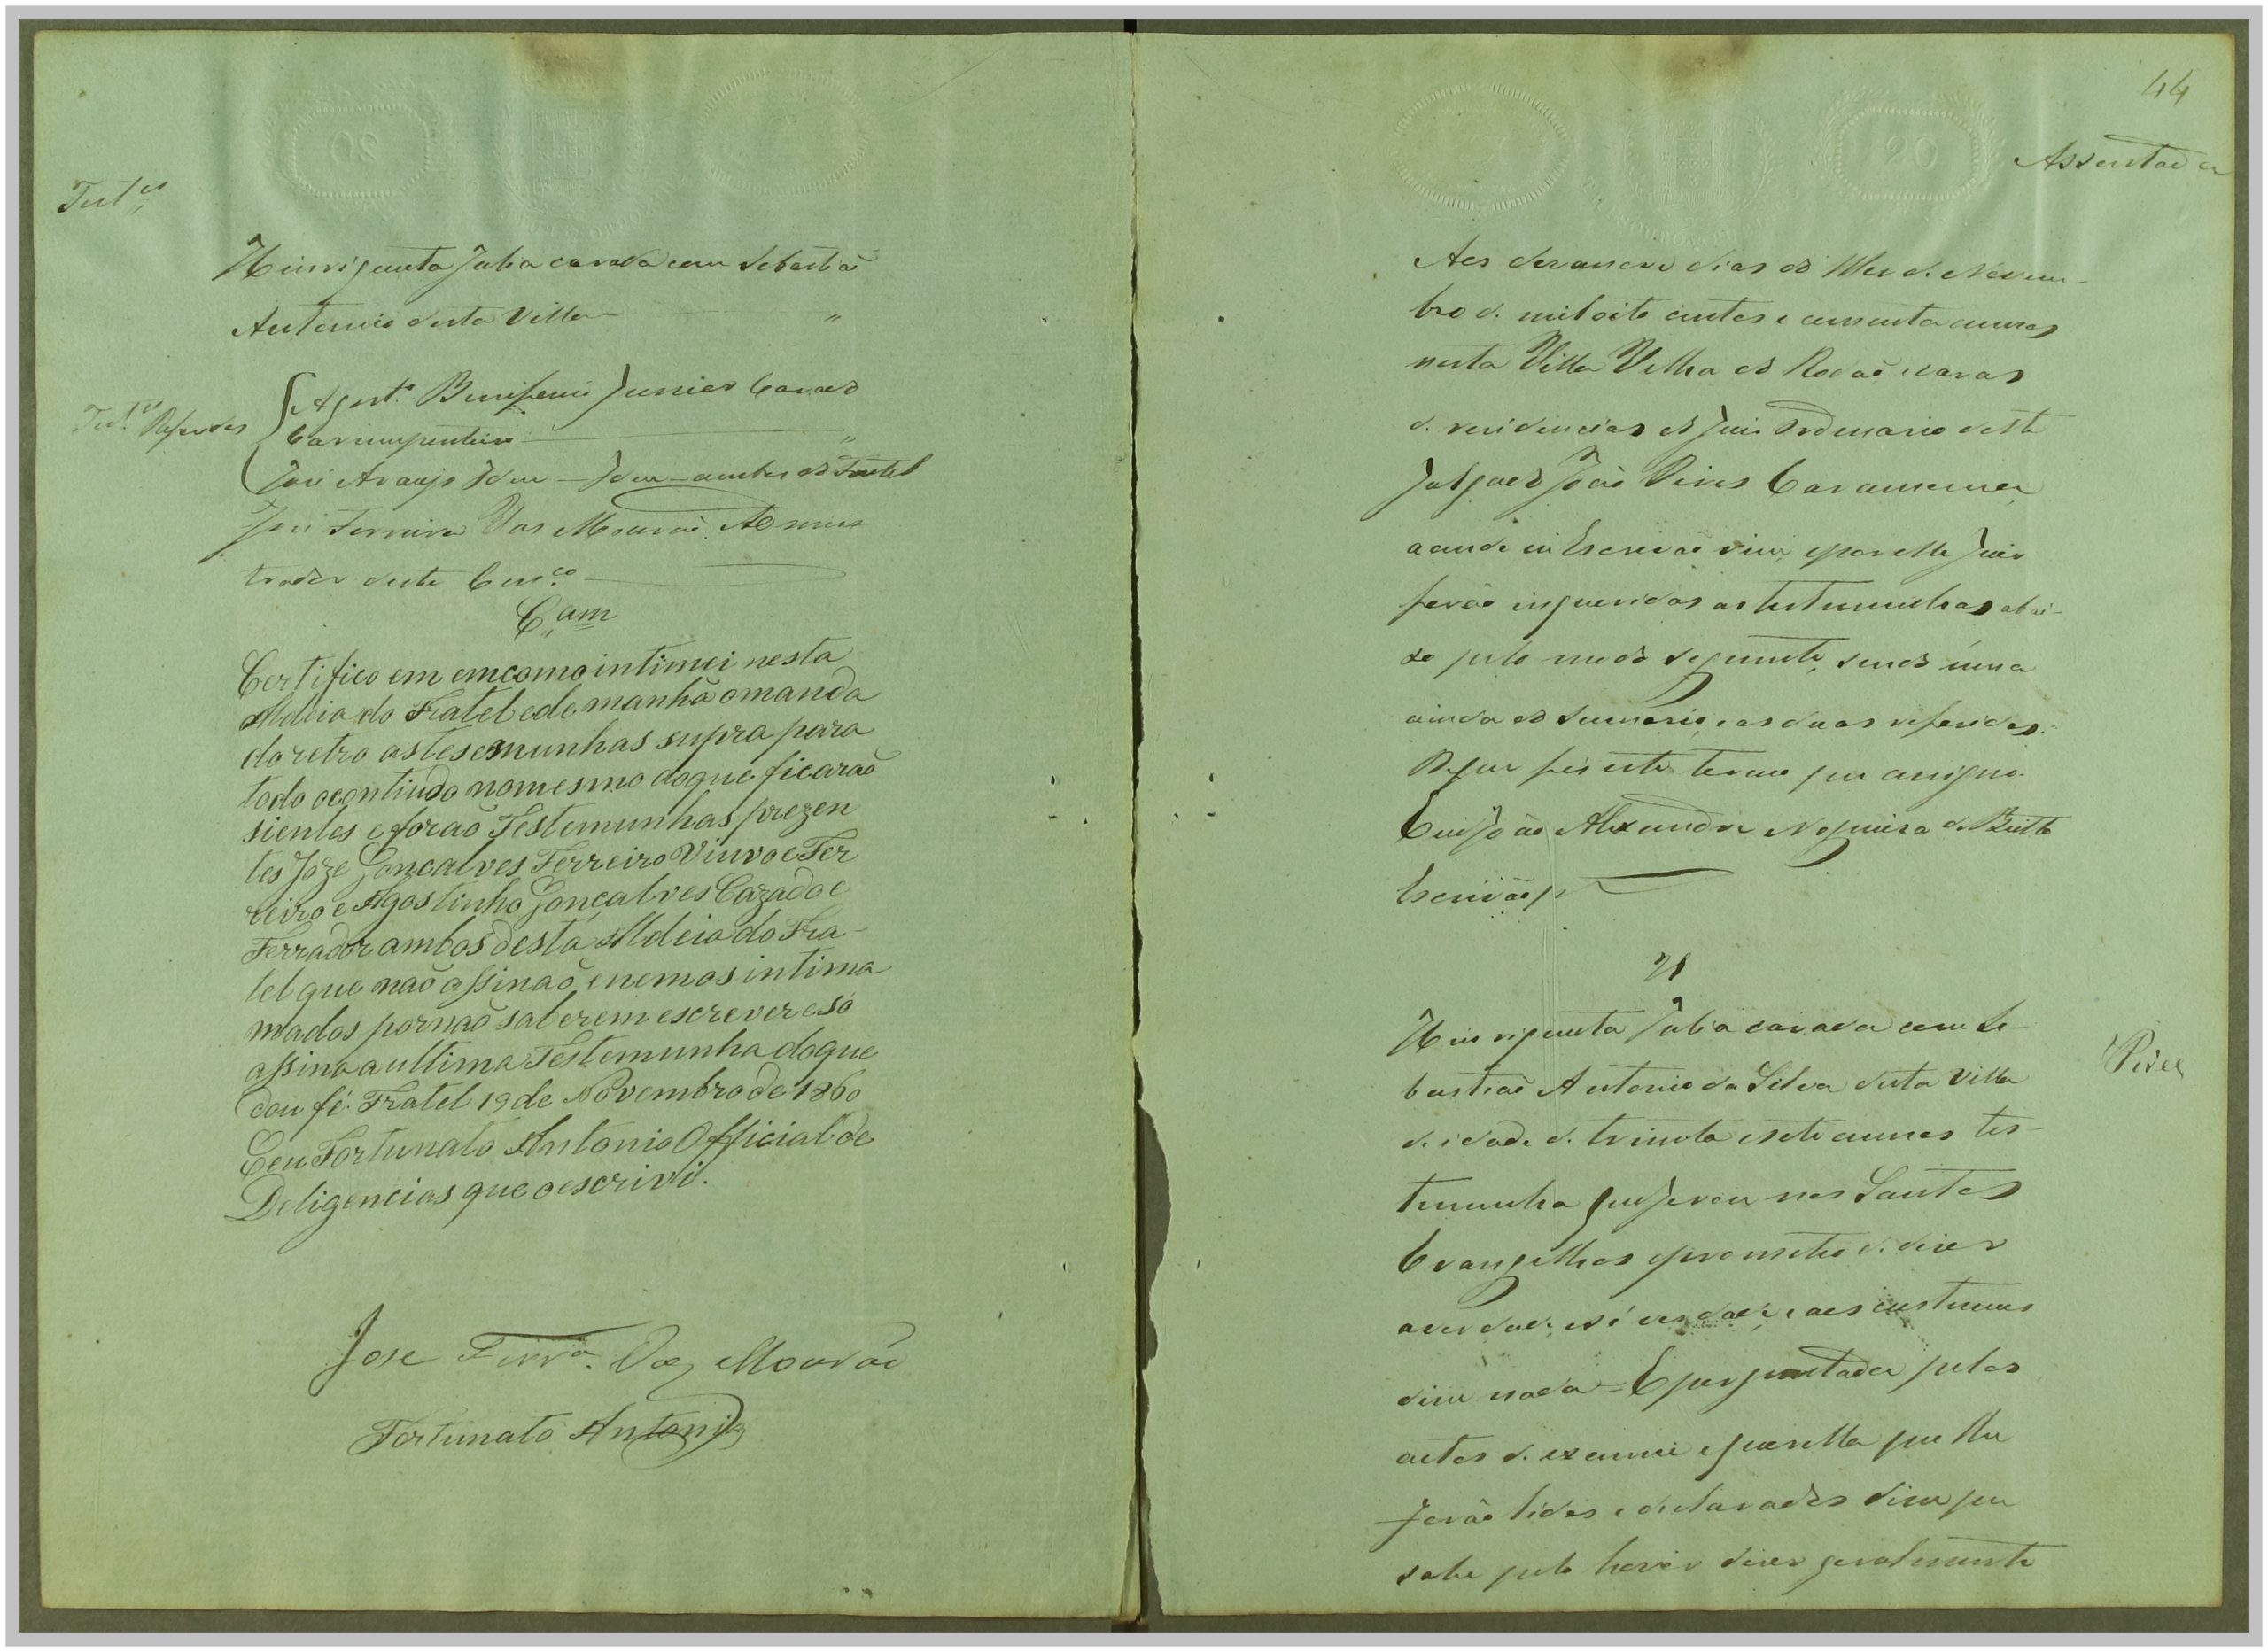 Test.es
Henriqueta Julia casada com Sebastiaõ
Antonio desta Villa "
Test.es Referidas
Agost.o Bonifacio Junior Casado
Carimpenteiro "
José Araujo Idem - Idem - ambos do Fratel
José Ferreira Vas Mouraõ, Adminis
trador deste Con.co
C.am
Certifico em emcomo intimei nesta
Aldeia do Fratel ede manhã omanda
do retro astesemunhas supra para
todo ocontiudo nomesmo doque ficaraõ
sientes eforaõ Testemunhas prezen
tes Joze Gonçalves Ferreiro Viuvo e Fer
reiro e Agostinho Gonçalves Cazado e
Ferrador ambos desta Aldeia do Fra-
tel que naõ assinaõ enemos intima
mados pornaõ saberem escrever e só
assina a ultima Testemunha doque
dou fé. Fratel 19 de Novembro de 1860
E eu Fortunato Antonio Official de
Deligencias que o escrivi.
Jose Ferr.a Vaz Mouraõ
Fortunato Antonio
44
Assentada
Aos desanove dias do Mes de Novem-
bro de mil oito centos e cessenta annos
nesta Villa Velha do Rodaõ e casas
de residencias do Juis Ordinario deste
Julgado João Pires Caramona
aonde eu Escrivaõ vim, epor elle Juis
foraõ inqueridas as testemunhas abai-
xo pelo modo seguinte, sendo uma
ainda do Sumario, e as duas referidas.
Do que fis este termo que assigna.
E eu João Alexandre Nogueira de Britto
Escrivaõ
Henriqueta Julia casada com Se-
bastiaõ Antonio da Silva desta Villa
de idade de trinta e sete annos tes-
temunha que jurou nos Santos
Evangelhos eprometeo de dizer
averdade e só verdade, e aos custumes
disse nada = E perguntada pelos
Pires
autos de exame e querella que lhe
foraõ lidos e declarados disse que
sabe pelo haver dizer geralmente